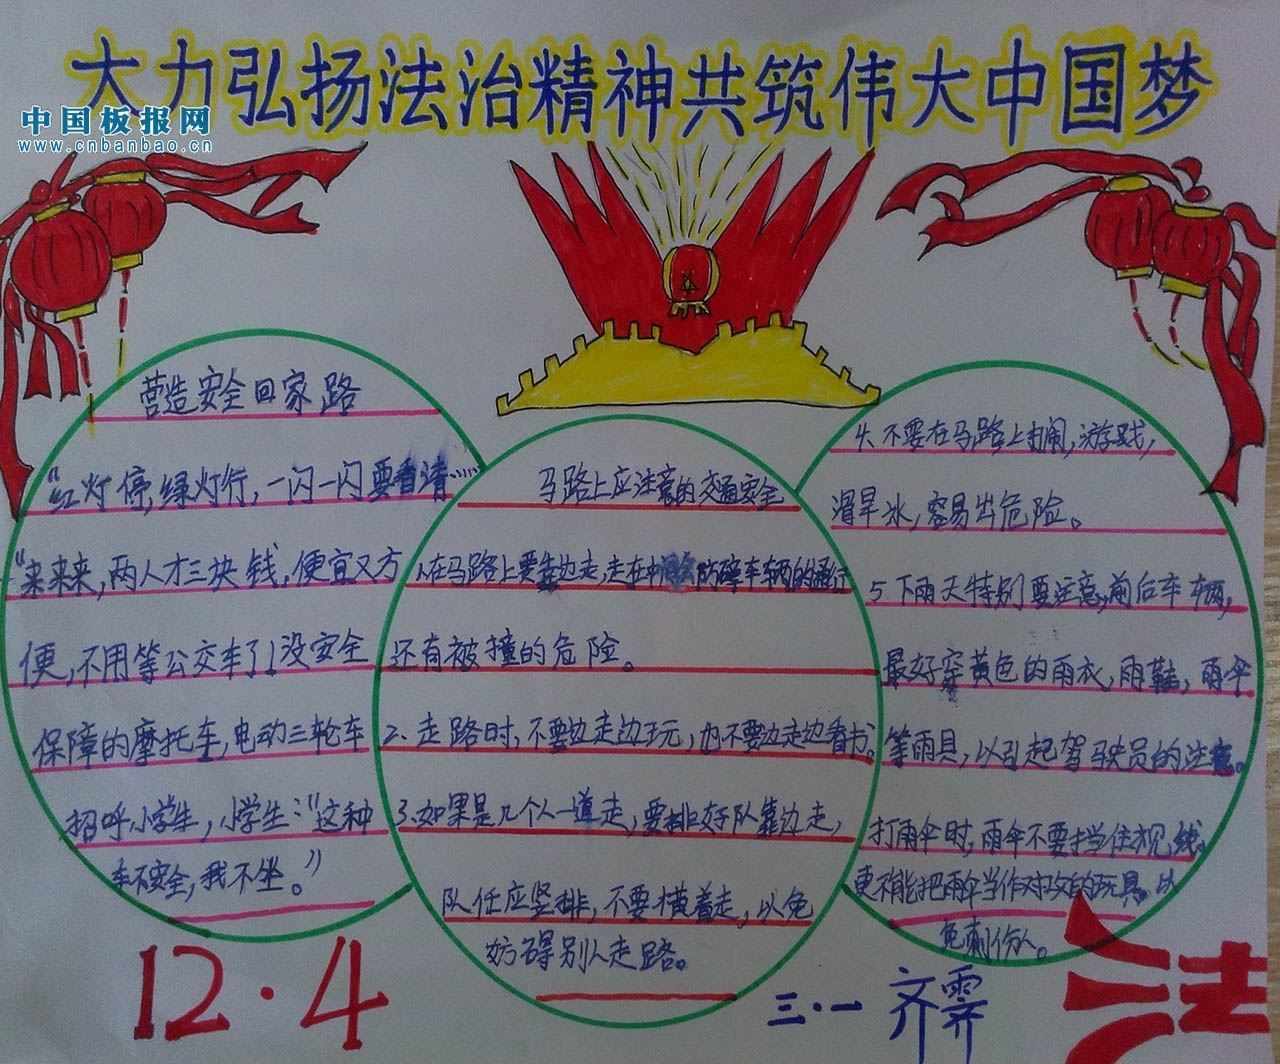 大力弘扬法治精神共筑伟大中国梦
中国板报网
www.cnbanbao.cn
营造安全回家路
“红灯停,绿灯行,一闪一闪要看清……
“来来来,两人才三块钱,便宜又方
便,不用等公交车了!没安全
保障的摩托车,电动三轮车
招呼小学生,小学生:“这种
车不安全,我不坐。”
马路上应注意的交通安全
1、在马路上要靠边走,走在中 妨碍车辆的通行
还有被撞的危险。
2、走路时,不要边走边玩,也不要边走边看书。
3、如果是几个人一道走,要排好队靠边走,
队伍应竖排,不要横着走,以免
妨碍别人走路。
4、不要在马路上打闹,游戏,
滑旱冰,容易出危险。
5、下雨天特别要注意,前后车辆,
最好穿黄色的雨衣,雨鞋,雨伞
等雨具,以引起驾驶员的注意。
打雨伞时,雨伞不要挡住视线。
更不能把雨伞当作对攻的玩具。以
免刺伤人。
12·4
三·一 齐霁
法